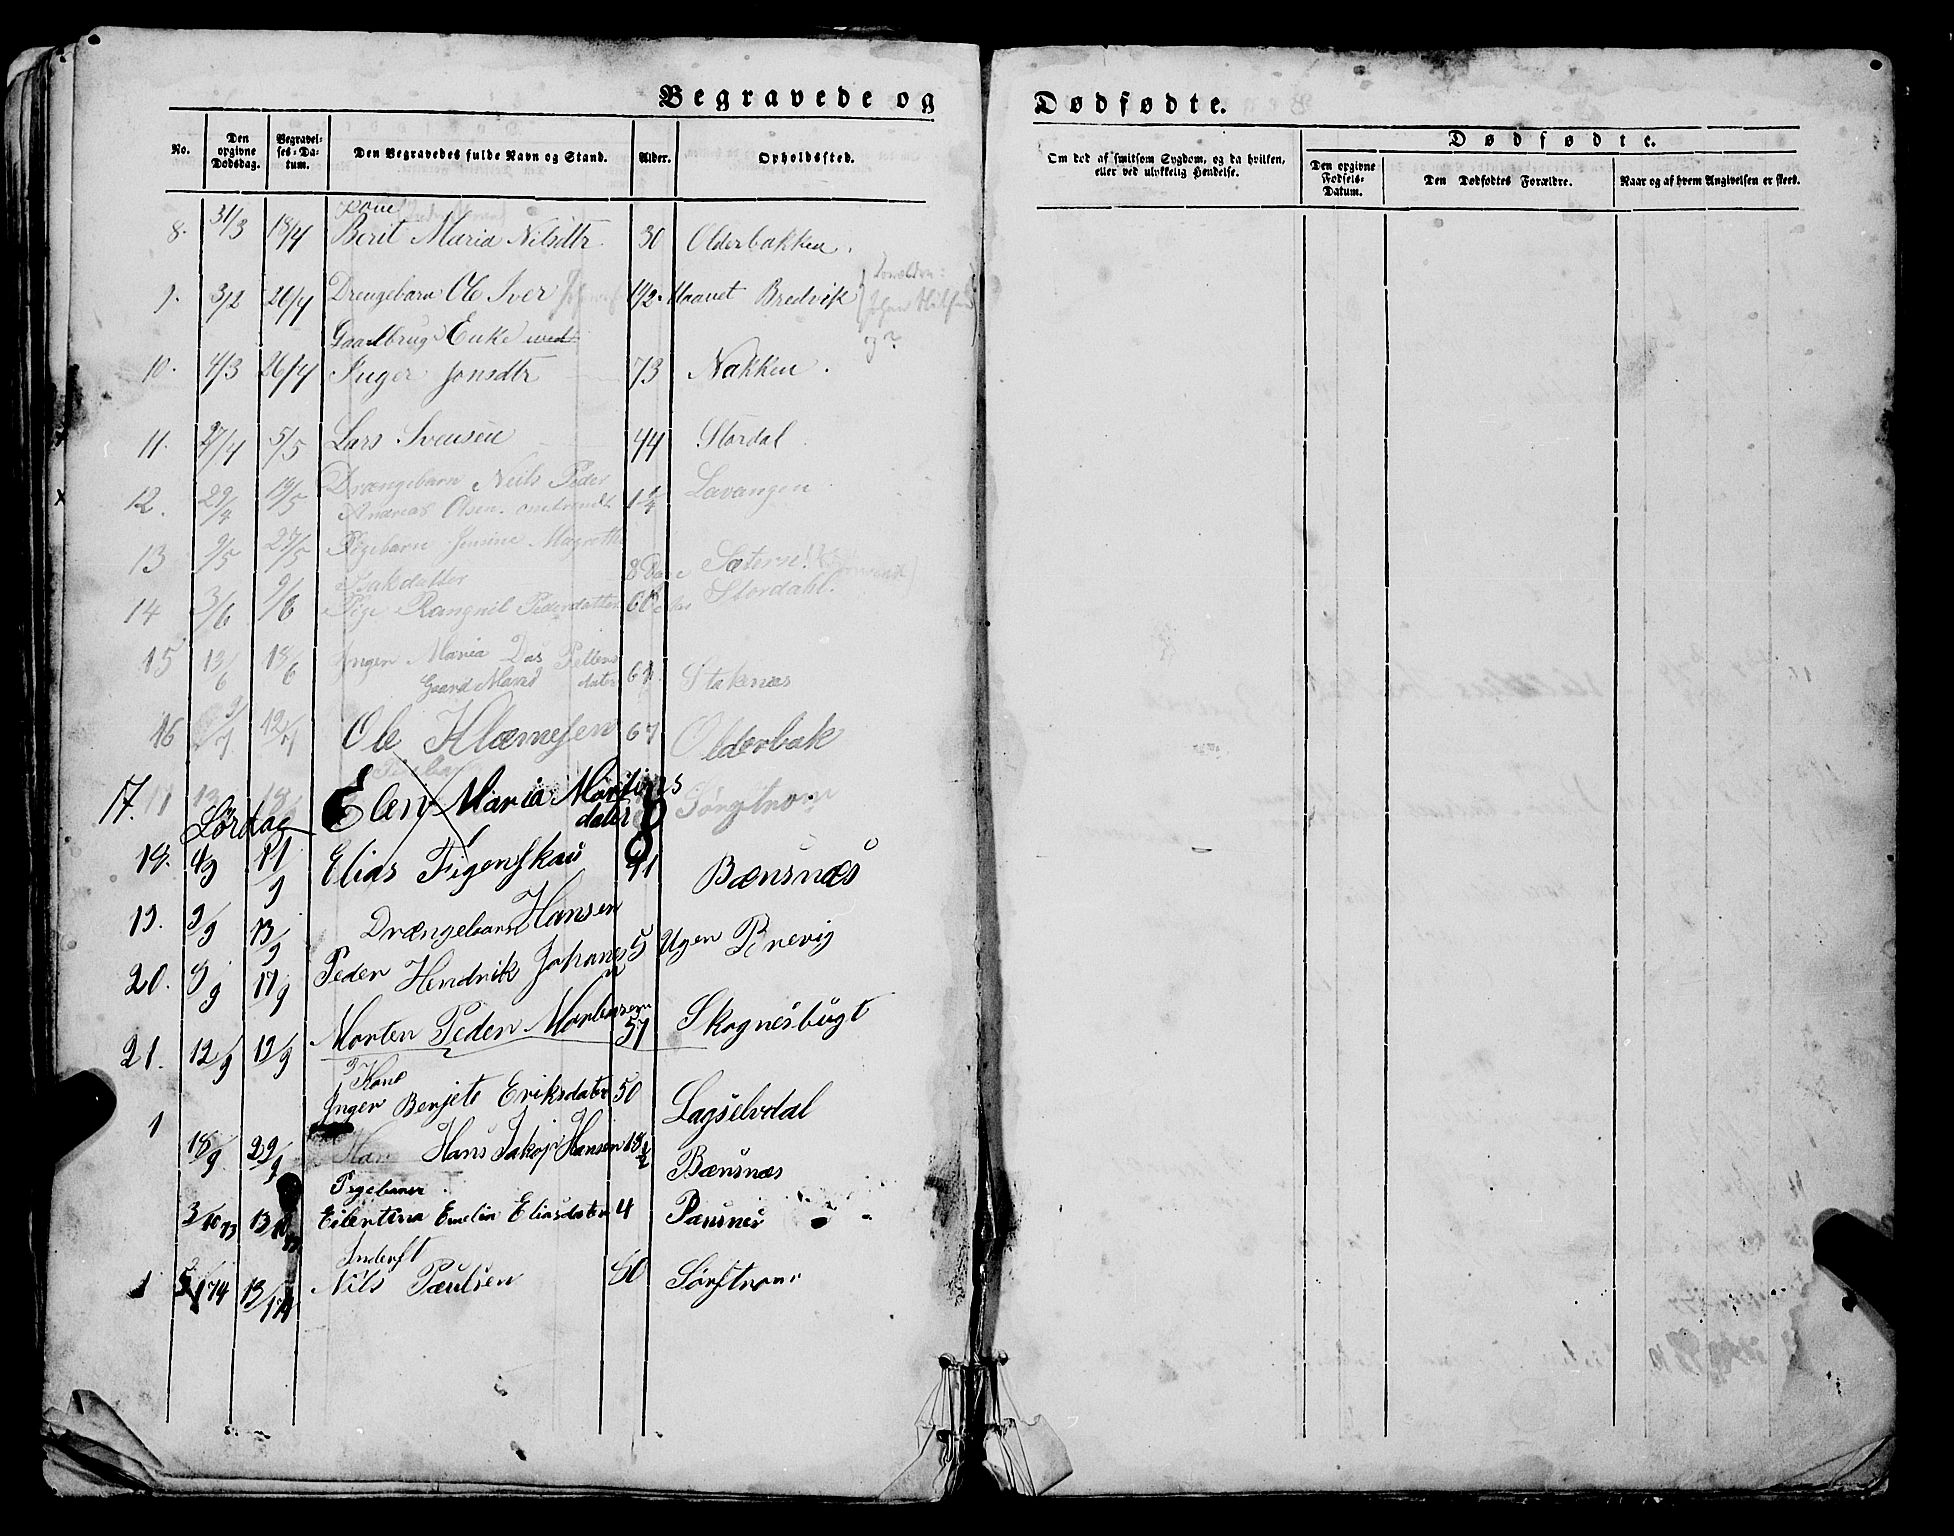 Begravede og
No. Den opgivne Dødsdag. Begravel-ses-Da-tum. Den Begravedes fulde Navn og Stand. Alder. Opholdssted.
Kone
8. 31/3 18/4 Berit Maria Nilsdtr. 30 Olderbakken.
Forældre:
9. 3/2 26/4 Drengebarn Ole Iver 1 1/2 Bredvik Johan
Gaardbrug. Enke
og?
10. 4/3 26/4 Inger Jonsdtr 73 Nakken.
11. 27/4 5/5 Lars Svensen 44 Stordal
Drængebarn Neils Peder
12. 29/4 19/5 Andreas Olsen. 1 3/4 Lavangen
13 9/5 27/5 Pigebarn Jensine Magrethe
Isakdatter 8 Sæterse
14 3/6 9/6 Pige Rangnil Pedersdatter 60 Stordahl.
15 13/6 18/6 Inger Maria Das Petters
Gaard Mand dater 61 Stakenæs
16 2/7 12/7 Ole Klæmesen 67 Olderbak
17. Elen Maria Mortens Sørgstrom
Lørdag dater 8
18. 4/9 11/9 Elias Figenskau 41 Bænsnæs
19. 9/9 13/9 Drængebarn Hansen
Peder Hendrik Johanes 5 Ugen Brevig
20. 8/9 17/9
Morten Peder Mortensen 57 Skognesbugt
21. 12/9 19/9
Kone
Inger Benjete Eriksdater 50 Lagselvdal
1
18/9 29/9 Hans Jakop Hansen 18 1/2 Bænsnæs
Pigebaner
3/10 73 13/10 73 Eilentina Emelia Eliasdater 4 Pænsnes
Inderst
1 5/1 74 13/1 74 Nils Paulsen 60 Sørstrom
Dødfødte.
Om død af smitsom Sygdom, og da hvilken, eller ved ulykkelig Hendelse.
Dødfødte.
Den opgivne Fødsels-Datum. Den Dødfødtes Forældre. Naar og af hvem Angivelsen er skeed.